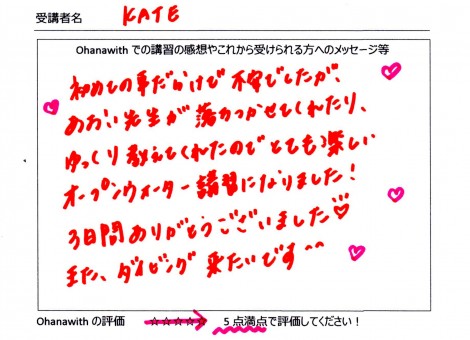 受講者名 KATE
Ohanawith での講習の感想やこれから受けられる方へのメッセージ等
初めての事だらけで不安でしたが、
あおい先生が落ちつかせてくれたり、
ゆっくり教えてくれたのでとても楽しい
オープンウォーター講習になりました!
3日間ありがとうございました♡
また、ダイビング来たいです^^
Ohanawith の評価 ☆☆☆☆☆ 5 点満点で評価してください!